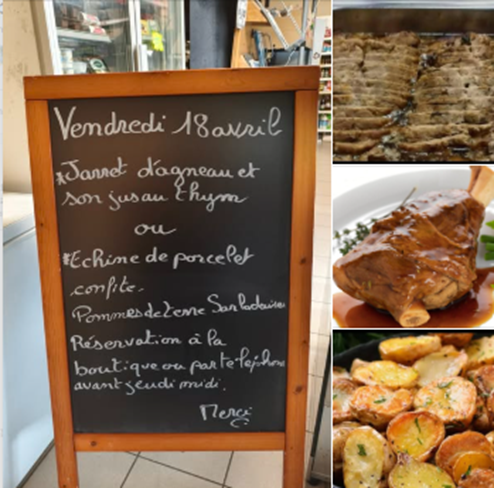 Vendredi 18 avril
*Jarret d'agneau et
son jus au thym
ou
*Echine de porcelet
confite.
Pommes de terre Sarladaises
Réservation à la
boutique ou par téléphone
avant jeudi midi.
Merci